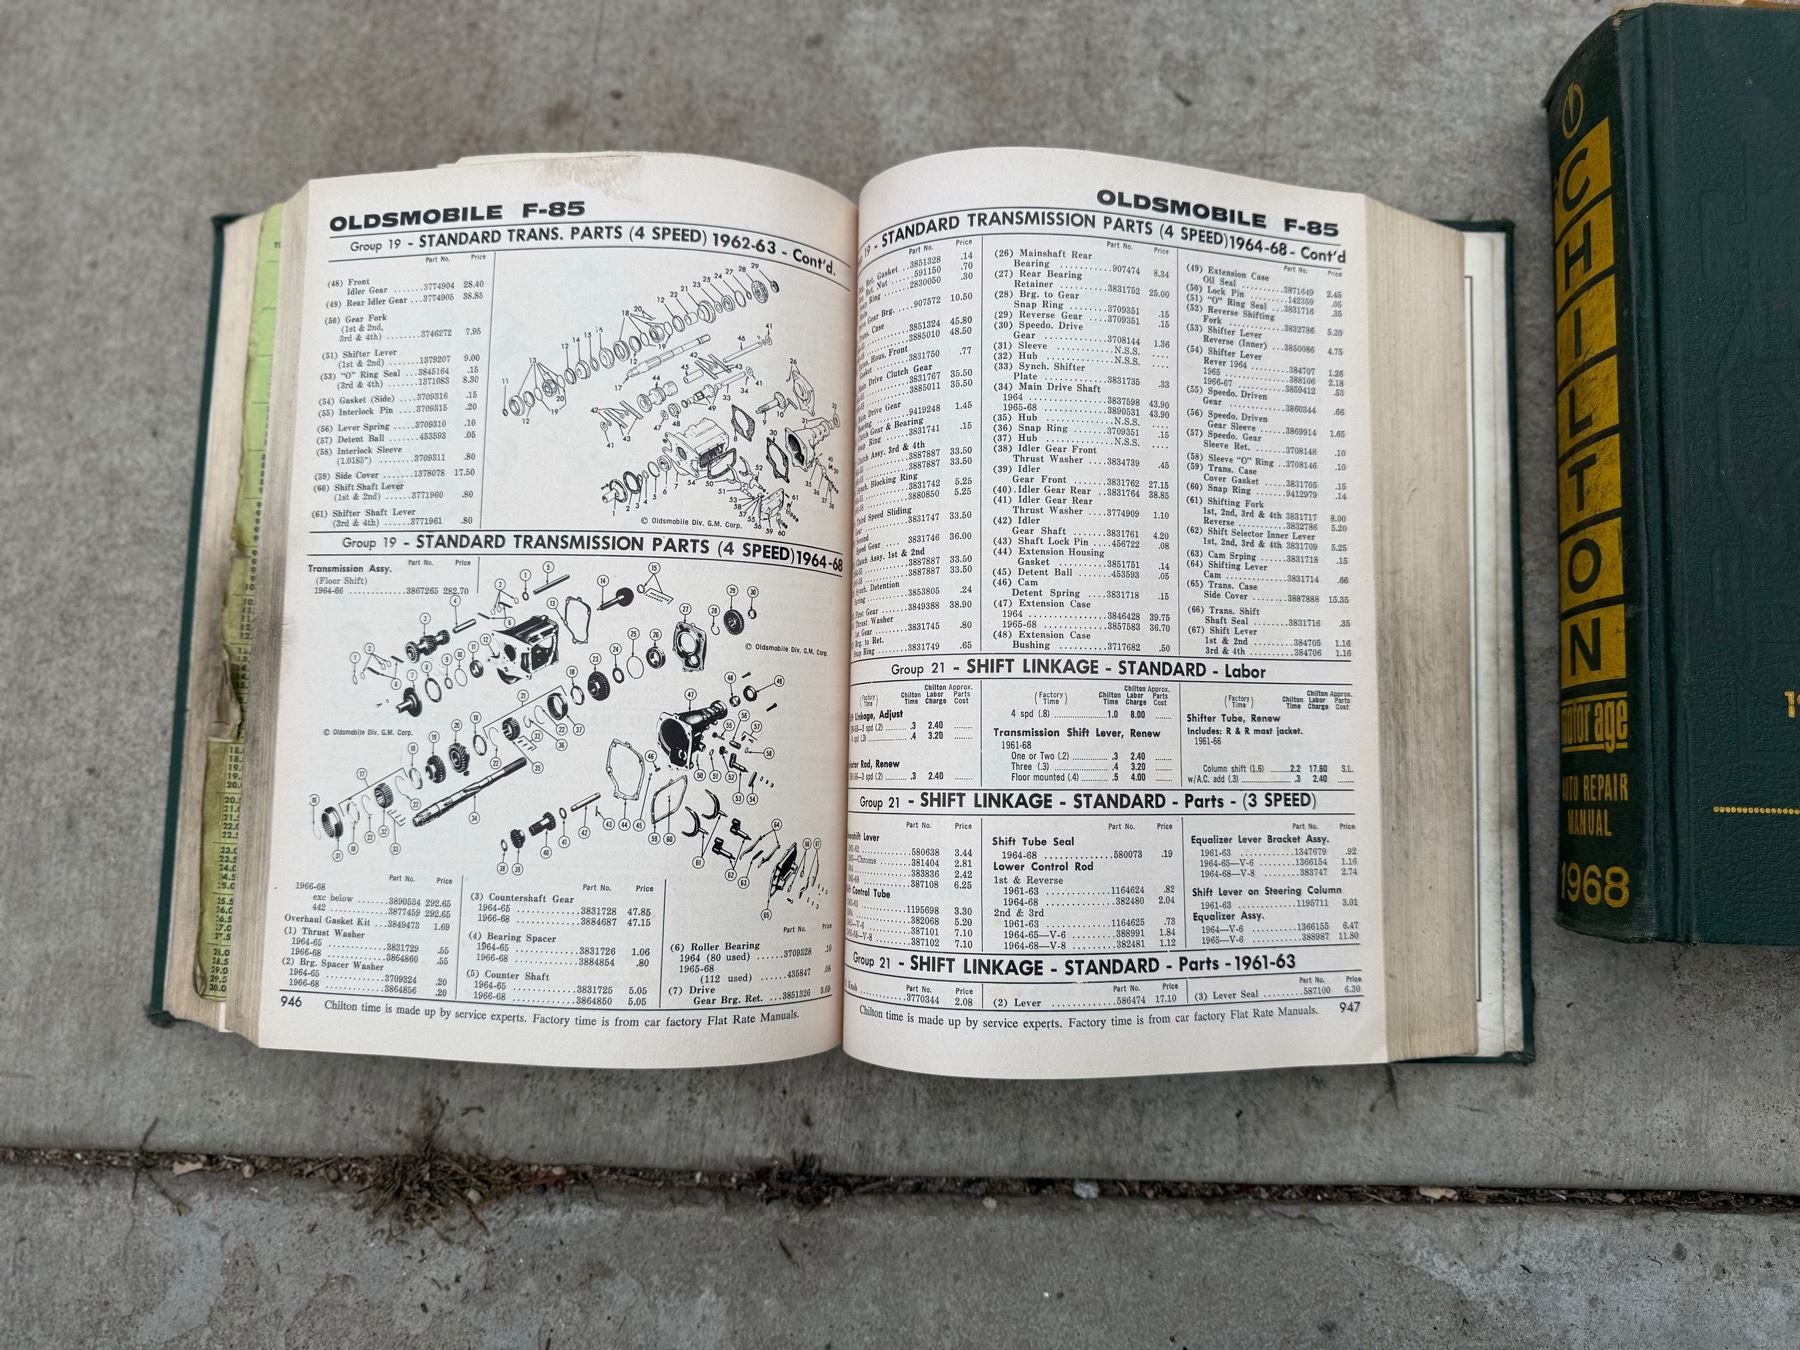 OLDSMOBILE F-85
Group 19 - STANDARD TRANS. PARTS (4 SPEED) 1962-63 - Cont'd.
Part No. Price
(48) Front
Idler Gear ....3774904 28.40
(49) Rear Idler Gear ...3774905 38.85
(50) Gear Fork
(1st & 2nd,
3rd & 4th) .......3746272 7.95
(51) Shifter Lever
(1st & 2nd) .......1379207 9.00
(53) "O" Ring Seal ...3845164 .15
(3rd & 4th) .......1371083 8.30
(54) Gasket (Side) ....3709316 .15
(55) Interlock Pin ....3709315 .20
(56) Lever Spring .....3709310 .10
(57) Detent Ball .......453593 .05
(58) Interlock Sleeve
(1.0185") .........3709311 .80
(59) Side Cover ......1378078 17.50
(60) Shift Shaft Lever
(1st & 2nd) .......3771960 .80
(61) Shifter Shaft Lever
(3rd & 4th) .......3771961 .80
© Oldsmobile Div. G.M. Corp.
Group 19 - STANDARD TRANSMISSION PARTS (4 SPEED) 1964-68
Part No. Price
Transmission Assy.
(Floor Shift)
1964-66 ...........3867265 282.70
© Oldsmobile Div. G.M. Corp.
© Oldsmobile Div. G.M. Corp.
Part No. Price
1966-68
exc below .......3890534 292.65
442 .............3877459 292.65
Overhaul Gasket Kit ...3849473 1.69
(1) Thrust Washer
1964-65 ...........3831729 .55
1966-68 ...........3864860 .55
(2) Brg. Spacer Washer
1964-65 ...........3709324 .20
1966-68 ...........3864856 .20
Part No. Price
(3) Countershaft Gear
1964-65 ...........3831728 47.85
1966-68 ...........3884687 47.15
(4) Bearing Spacer
1964-65 ...........3831726 1.06
1966-68 ...........3884854 .80
(5) Counter Shaft
1964-65 ...........3831725 5.05
1966-68 ...........3864850 5.05
Part No. Price
(6) Roller Bearing
1964 (80 used) .....3709328 .10
1965-68
(112 used) .......435847 .08
(7) Drive
Gear Brg. Ret. ...3851326
946 Chilton time is made up by service experts. Factory time is from car factory Flat Rate Manuals.
OLDSMOBILE F-85
19 - STANDARD TRANSMISSION PARTS (4 SPEED) 1964-68 - Cont'd
Part No. Price
Gasket ..3851328 .14
Ret. Nut ....591150 .70
Ring .......2830050 .30
Gear Brg. ..907572 10.50
Case
3851324 45.80
3885010 48.50
Hous. Front
Gasket ......3831750 .77
Main Drive Clutch Gear
3831767 35.50
3885011 35.50
Drive Gear
Bearing ......9419248 1.45
Gear & Bearing
Ring ......3831741 .15
Assy. 3rd & 4th
3887887 33.50
3887887 33.50
Synch. Blocking Ring
3831742 5.25
3880850 5.25
Third Speed Sliding
3831747 33.50
Second
Speed Gear ....3831746 36.00
Assy. 1st & 2nd
3887887 33.50
3887887 33.50
Synch. Detention
Spring ........3853805 .24
First Gear ....3849388 38.90
Thrust Washer
1st Gear ......3831745 .80
to Ret.
Ring .........3831749 .65
(26) Mainshaft Rear
Bearing ..........907474 8.34
(27) Rear Bearing
Retainer .......3831752 25.00
(28) Brg. to Gear
Snap Ring .......3709351 .15
(29) Reverse Gear ....3709351 .15
(30) Speedo. Drive
Gear ............3708144 1.36
(31) Sleeve ...........N.S.S. ....
(32) Hub ..............N.S.S. ....
(33) Synch. Shifter
Plate ...........3831735 .33
(34) Main Drive Shaft
1964 ............3837598 43.90
1965-68 .........3890531 43.90
(35) Hub ..............N.S.S. ....
(36) Snap Ring .......3709351 .15
(37) Hub ..............N.S.S. ....
(38) Idler Gear Front
Thrust Washer ....3834739 .45
(39) Idler
Gear Front .......3831762 27.15
(40) Idler Gear Rear ...3831764 38.85
(41) Idler Gear Rear
Thrust Washer ....3774909 1.10
(42) Idler
Gear Shaft .......3831761 4.20
(43) Shaft Lock Pin ....456722 .08
(44) Extension Housing
Gasket ..........3851751 .14
(45) Detent Ball .......453593 .05
(46) Cam
Detent Spring ....3831718 .15
(47) Extension Case
1964 ............3846428 39.75
1965-68 .........3857583 36.70
(48) Extension Case
Bushing .........3717682 .50
Part No. Price
(49) Extension Case
Oil Seal .........3871649 2.45
(50) Lock Pin .........142359 .05
(51) "O" Ring Seal ...3831716 .35
(52) Reverse Shifting
Fork ............3832786 5.20
(53) Shifter Lever
Reverse (Inner) ...3850086 4.75
(54) Shifter Lever
Rever 1964 .......384707 1.26
1965 ............388106 2.18
1966-67 .........3859412 .53
(55) Speedo. Driven
Gear ............3860344 .66
(56) Speedo. Driven
Gear Sleeve ......3869914 1.65
(57) Speedo. Gear
Sleeve Ret. .......3708148 .10
(58) Sleeve "O" Ring ..3708146 .10
(59) Trans. Case
Cover Gasket .....3831705 .15
(60) Snap Ring .......9412979 .14
(61) Shifting Fork
1st, 2nd, 3rd & 4th 3831717 8.00
Reverse .........3832786 5.20
(62) Shift Selector Inner Lever
1st, 2nd, 3rd & 4th 3831709 5.25
(63) Cam Srping ......3831718 .15
(64) Shifting Lever
Cam ............3831714 .66
(65) Trans. Case
Side Cover .......3887888 15.35
(66) Trans. Shift
Shaft Seal ........3831716 .35
(67) Shift Lever
1st & 2nd ........384705 1.16
3rd & 4th ........384706 1.16
Group 21 - SHIFT LINKAGE - STANDARD - Labor
(Factory Time) Chilton Time Chilton Labor Charge Approx. Parts Cost
Linkage, Adjust
3 spd (.2) .3 2.40
4 spd (.3) .4 3.20
Rod, Renew
3 spd (.2) .3 2.40
(Factory Time) Chilton Time Chilton Labor Charge Approx. Parts Cost
4 spd (.8) 1.0 8.00
Transmission Shift Lever, Renew
1961-68
One or Two (.2) .3 2.40
Three (.3) .4 3.20
Floor mounted (.4) .5 4.00
(Factory Time) Chilton Time Chilton Labor Charge Approx. Parts Cost
Shifter Tube, Renew
Includes: R & R mast jacket.
1961-66
Column shift (1.6) 2.2 17.60 S.L.
w/A.C. add (.3) .3 2.40
Group 21 - SHIFT LINKAGE - STANDARD - Parts - (3 SPEED)
Part No. Price
Lever
580638 3.44
Chrome ......381404 2.81
383836 2.42
387108 6.25
Control Tube
1195698 3.30
382068 5.20
V-6 .........387101 7.10
V-8 .........387102 7.10
Part No. Price
Shift Tube Seal
1964-68 ............580073 .19
Lower Control Rod
1st & Reverse
1961-63 ...........1164624 .82
1964-68 ............382480 2.04
2nd & 3rd
1961-63 ...........1164625 .73
1964-65—V-6 ........388991 1.84
1964-68—V-8 ........382481 1.12
Part No. Price
Equalizer Lever Bracket Assy.
1961-63 ...........1347679 .92
1964-65—V-6 .......1366154 1.16
1964-68—V-8 ........383747 2.74
Shift Lever on Steering Column
1961-63 ...........1195711 3.01
Equalizer Assy.
1964—V-6 ..........1366155 6.47
1965—V-6 ...........388987 11.80
Group 21 - SHIFT LINKAGE - STANDARD - Parts - 1961-63
Part No. Price
Knob ..........3770344 2.08
Part No. Price
(2) Lever ............586474 17.10
Part No. Price
(3) Lever Seal .........587100 6.30
Chilton time is made up by service experts. Factory time is from car factory Flat Rate Manuals. 947
CHILTON
motor age
AUTO REPAIR
MANUAL
1968